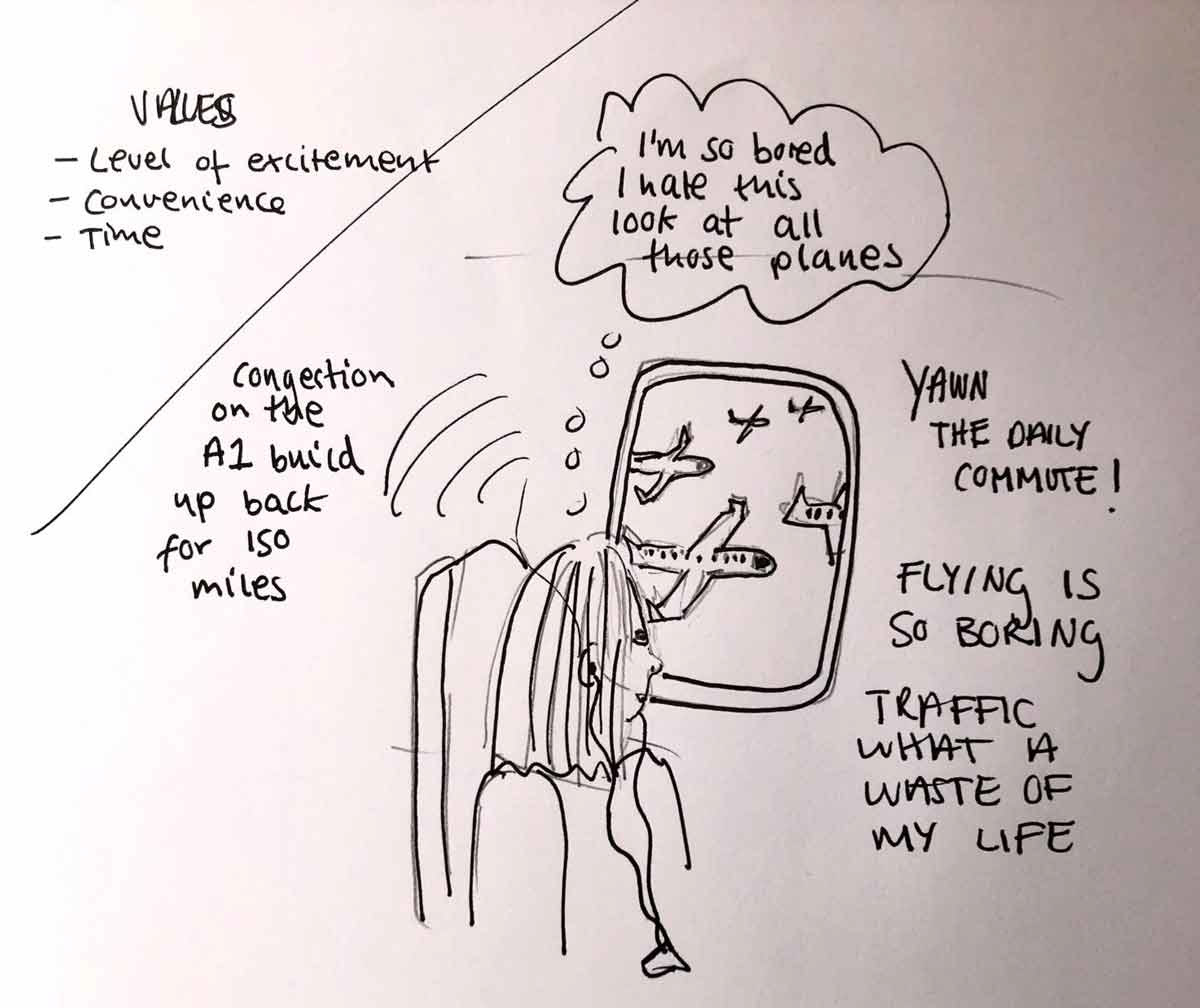 VALUES
- Level of excitement
- Convenience
- Time
I'm so bored
I hate this
look at all
those planes
congestion
on the
A1 build
up back
for 150
miles
YAWN
THE DAILY
COMMUTE!
FLYING IS
SO BORING
TRAFFIC
WHAT A
WASTE OF
MY LIFE